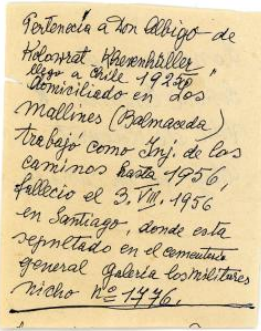 Pertenecía a Don Albigo de
Kolowrat Khevenhüller
llego a Chile 1925
Domiciliado en Los
Mallines (Balmaceda)
trabajó como Inj. de los
caminos hasta 1956,
fallecio el 3. VIII. 1956
en Santiago, donde esta
sepultado en el cementerio
general galeria los militares
nicho nº 1776.